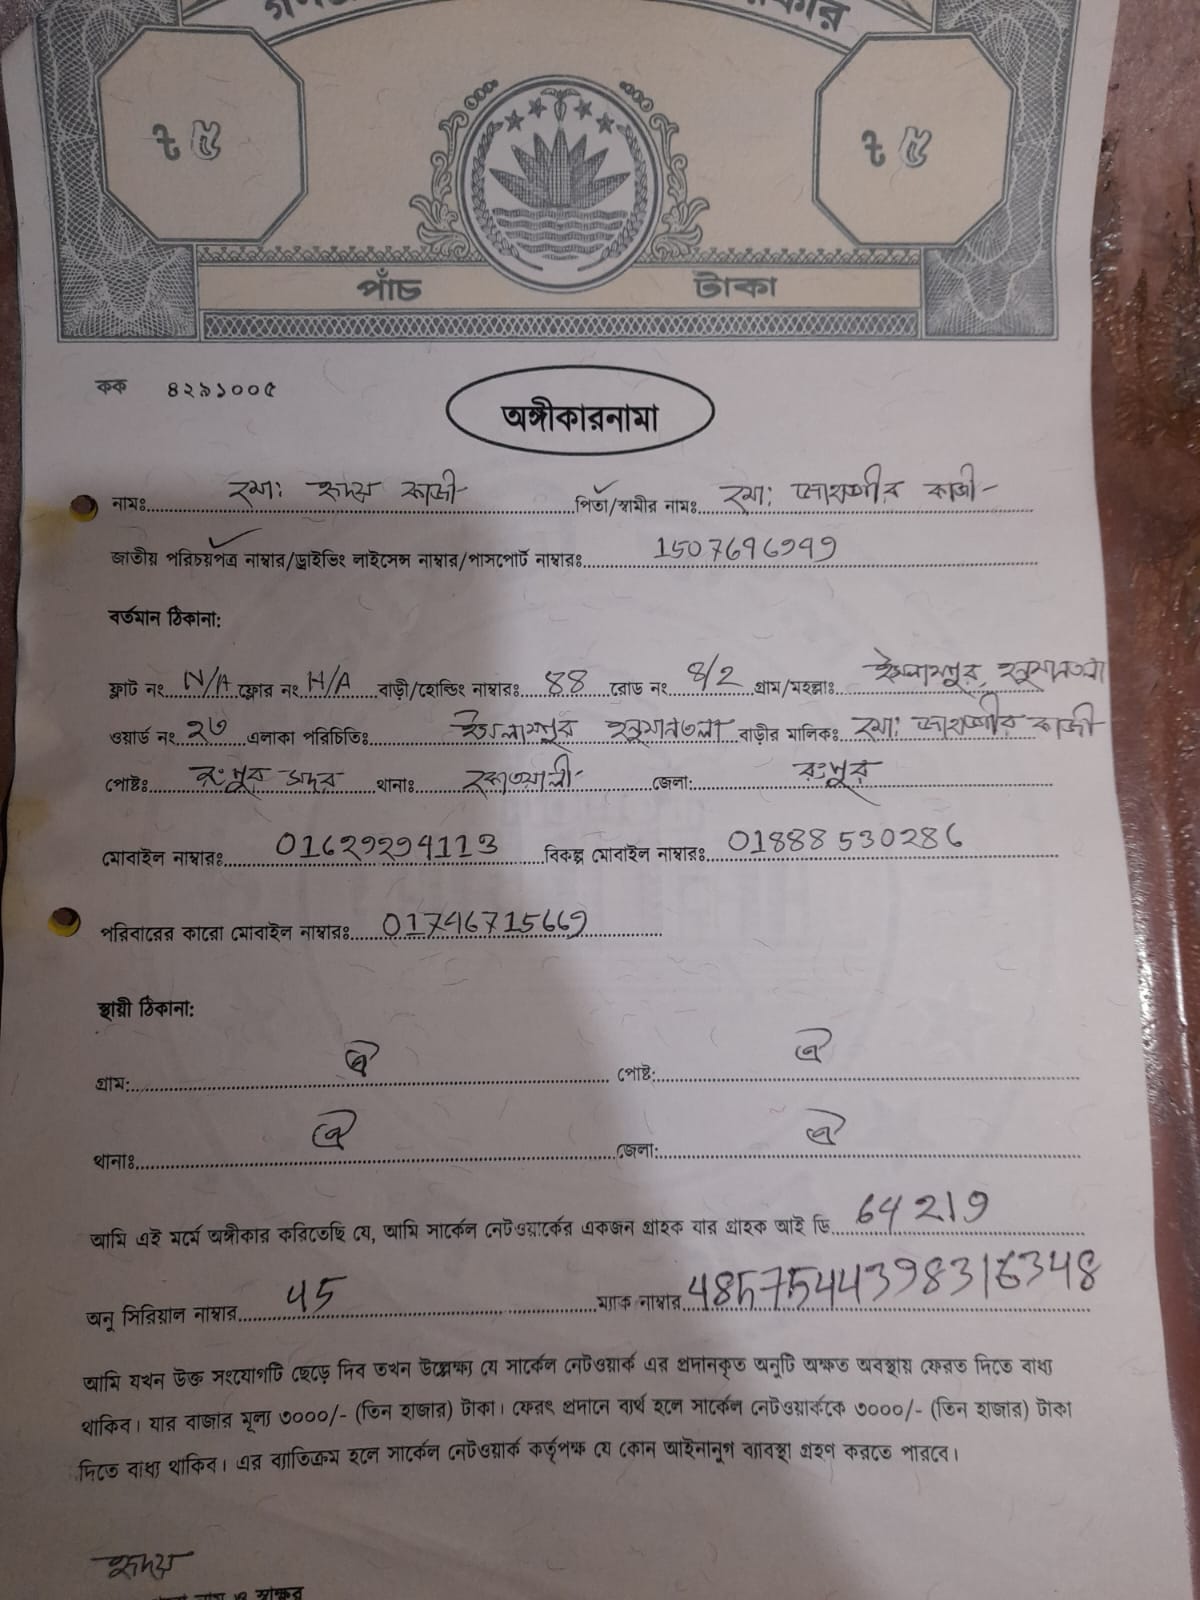 ৳ ৫ ৳ ৫
পাঁচ টাকা
কক ৪২৯১০০৫
অঙ্গীকারনামা
নামঃ মোঃ হৃদয় কাজী পিতা/স্বামীর নামঃ মোঃ জাহাঙ্গীর কাজী
জাতীয় পরিচয়পত্র নাম্বার/ড্রাইভিং লাইসেন্স নাম্বার/পাসপোর্ট নাম্বারঃ 1507696949
বর্তমান ঠিকানা:
ফ্লাট নং N/A ফ্লোর নং N/A বাড়ী/হোল্ডিং নাম্বারঃ ৪৪ রোড নং ৪/2 গ্রাম/মহল্লাঃ ইসলামপুর, হনুমানতলা
ওয়ার্ড নং ২৩ এলাকা পরিচিতিঃ ইসলামপুর হনুমানতলা বাড়ীর মালিকঃ মোঃ জাহাঙ্গীর কাজী
পোষ্টঃ রংপুর সদর থানাঃ কোতয়ালী জেলা: রংপুর
মোবাইল নাম্বারঃ বিকল্প মোবাইল নাম্বারঃ 01888530286
পরিবারের কারো মোবাইল নাম্বারঃ 01746715669
স্থায়ী ঠিকানা:
গ্রাম: ঐ পোষ্ট: ঐ
থানাঃ ঐ জেলা: ঐ
আমি এই মর্মে অঙ্গীকার করিতেছি যে, আমি সার্কেল নেটওয়ার্কের একজন গ্রাহক যার গ্রাহক আই ডি 64219
অনু সিরিয়াল নাম্বার 45 ম্যাক নাম্বার 4857544398316348
আমি যখন উক্ত সংযোগটি ছেড়ে দিব তখন উল্লেক্ষ্য যে সার্কেল নেটওয়ার্ক এর প্রদানকৃত অনুটি অক্ষত অবস্থায় ফেরত দিতে বাধ্য
থাকিব। যার বাজার মূল্য ৩০০০/- (তিন হাজার) টাকা। ফেরৎ প্রদানে ব্যর্থ হলে সার্কেল নেটওয়ার্ককে ৩০০০/- (তিন হাজার) টাকা
দিতে বাধ্য থাকিব। এর ব্যতিক্রম হলে সার্কেল নেটওয়ার্ক কর্তৃপক্ষ যে কোন আইনানুগ ব্যাবস্থা গ্রহণ করতে পারবে।
হৃদয়